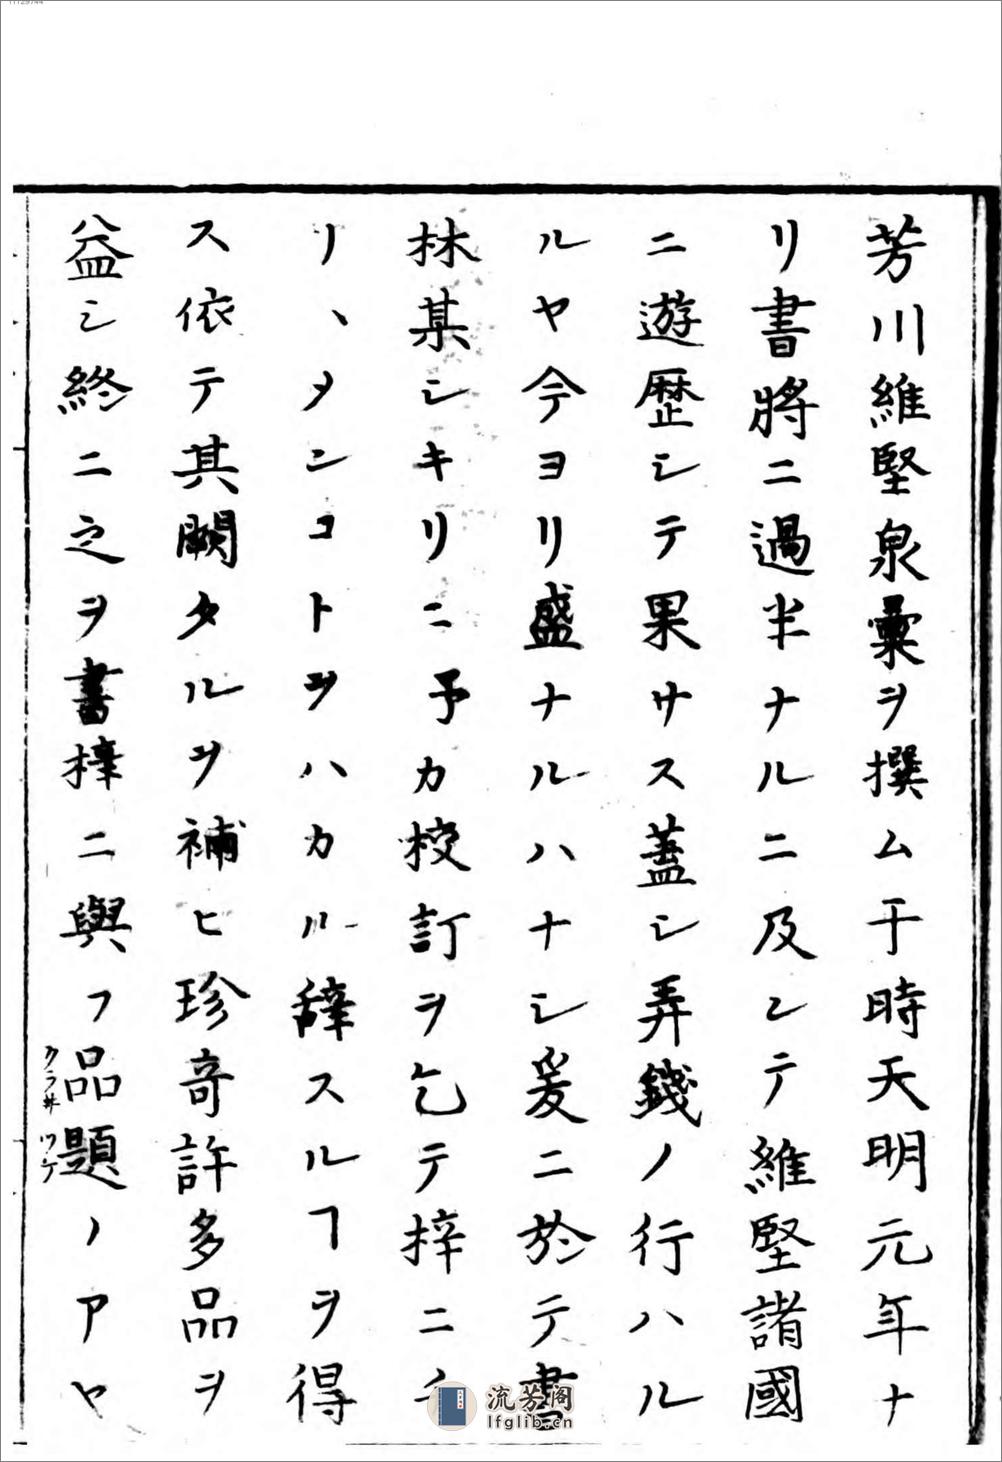 芳川維堅泉彙ヲ撰ム于時天明元年ナ
リ書將ニ過半ナルニ及ンテ維堅諸國
ニ遊歴シテ果サス蓋シ弄錢ノ行ハル
ルヤ今ヨリ盛ナルハナシ爰ニ於テ書
林某シキリニ予カ校訂ヲ乞テ梓ニ
リヽメンコトヲハカル辤スルヿヲ得
ス依テ其闕タルヲ補ヒ珍奇許多品ヲ
益シ終ニ之ヲ書梓ニ與フ品題ノアヤ
クラ井 ツケ
流芳阁
lfglib.cn